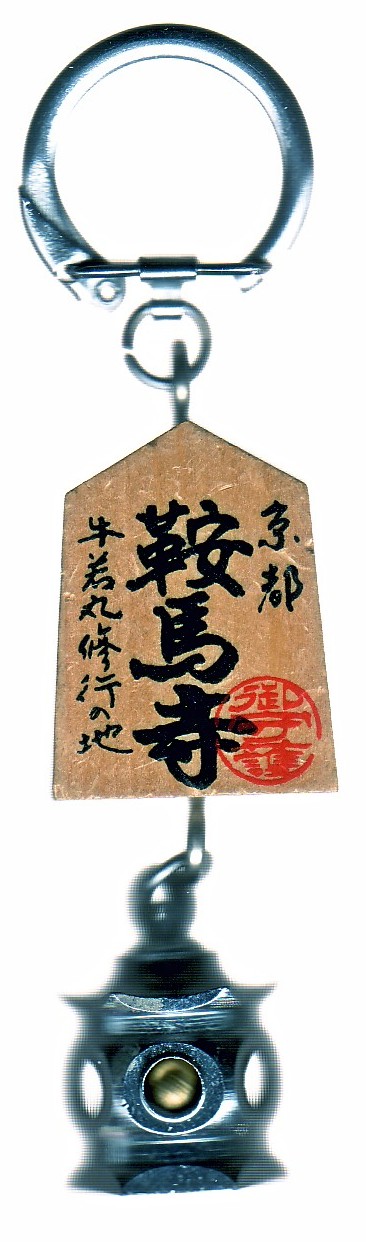 京都
鞍馬寺
牛若丸修行の地
御守護